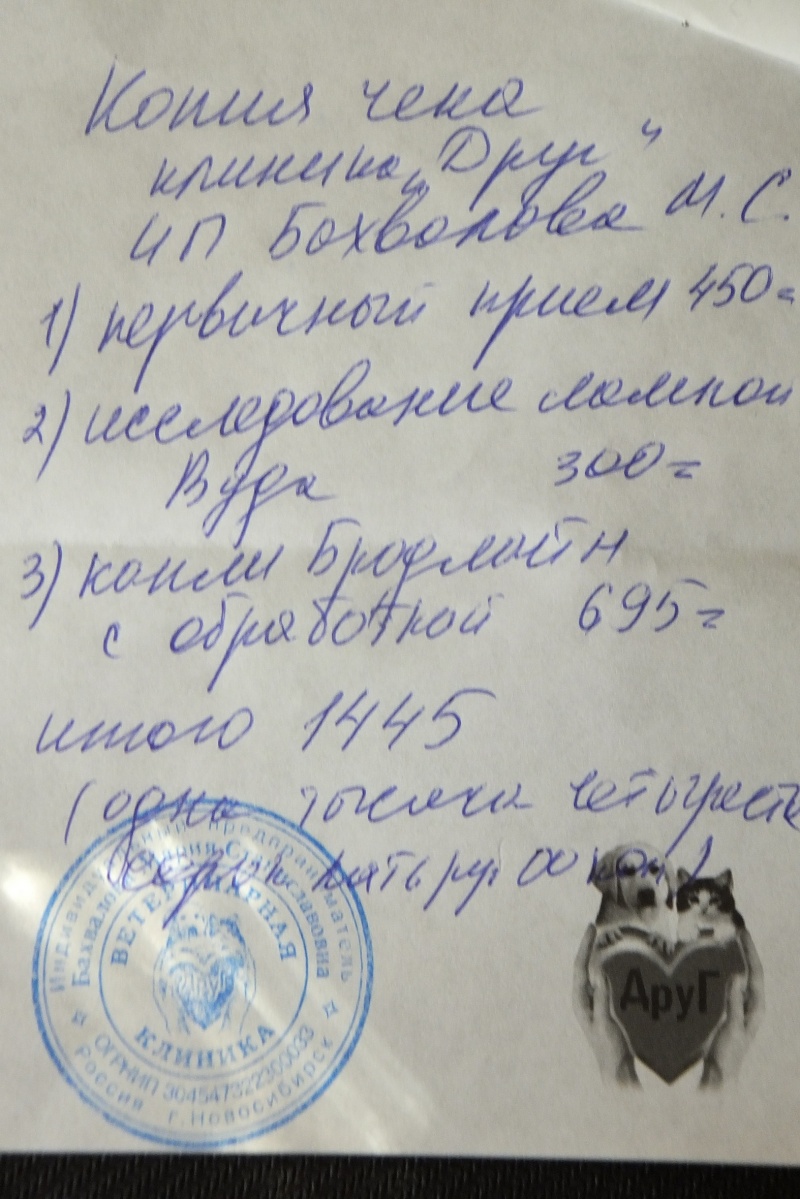 Копия чека
клиника "Друг"
ИП Бахвалова М.С.
1) первичный прием 450=
2) исследование лампой
Вуда 300=
3) капли Бродлайн
с обработкой 695=
итого 1445
(одна тысяча четыреста
сорок пять ру. 00 коп)
Индивидуальный предприниматель
Бахвалова Мария Станиславовна
ВЕТЕРИНАРНАЯ
Друг
КЛИНИКА
ОГРНИП 304547322300033
Россия г.Новосибирск
ДруГ